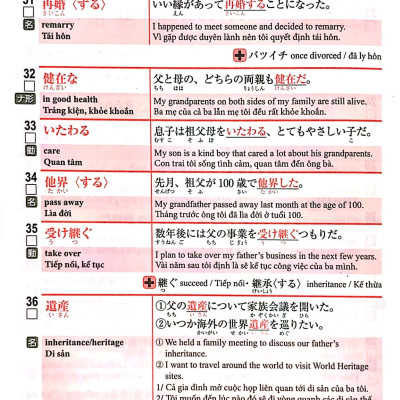 31 再婚〈する〉 いい縁があって再婚することになった。
さいこん えん さいこん
名 remarry I happened to meet someone and decided to remarry.
Tái hôn Vì gặp được duyên lành nên tôi quyết định tái hôn.
＋ バツイチ once divorced / đã ly hôn
32 健在な 父と母の、どちらの両親も健在だ。
けんざい ちち はは りょうしん けんざい
ナ形 in good health My grandparents on both sides of my family are still alive.
Tráng kiện, khỏe khoắn Ba mẹ của cả ba lẫn mẹ tôi đều rất khỏe khoắn.
33 いたわる 息子は祖父母をいたわる、とてもやさしい子だ。
むすこ そふぼ こ
動 care My son is a kind boy that cared a lot about his grandparents.
Quan tâm Con trai tôi sống tình cảm, quan tâm đến ông bà.
34 他界〈する〉 先月、祖父が100歳で他界した。
たかい せんげつ そふ さい たかい
名 pass away My grandfather passed away last month at the age of 100.
Lìa đời Tháng trước ông tôi đã lìa đời ở tuổi 100.
35 受け継ぐ 数年後には父の事業を受け継ぐつもりだ。
う つ すうねんご ちち じぎょう う つ
動 take over I plan to take over my father's business in the next few years.
Tiếp nối, kế tục Vài năm sau tôi định là sẽ kế tục công việc của ba mình.
＋ 継ぐ succeed / Tiếp nối・継承〈する〉 inheritance / Kế thừa
つ けいしょう
36 遺産 ①父の遺産について家族会議を開いた。
いさん ちち いさん かぞくかいぎ ひら
②いつか海外の世界遺産を巡りたい。
かいがい せかいいさん めぐ
名 inheritance/heritage ① We held a family meeting to discuss our father's
Di sản inheritance.
② I want to travel around the world to visit World Heritage
sites.
1/ Cả gia đình mở cuộc họp liên quan tới di sản của ba tôi.
2/ Tôi muốn đến lúc nào đó sẽ đi vòng quanh các di sản thế